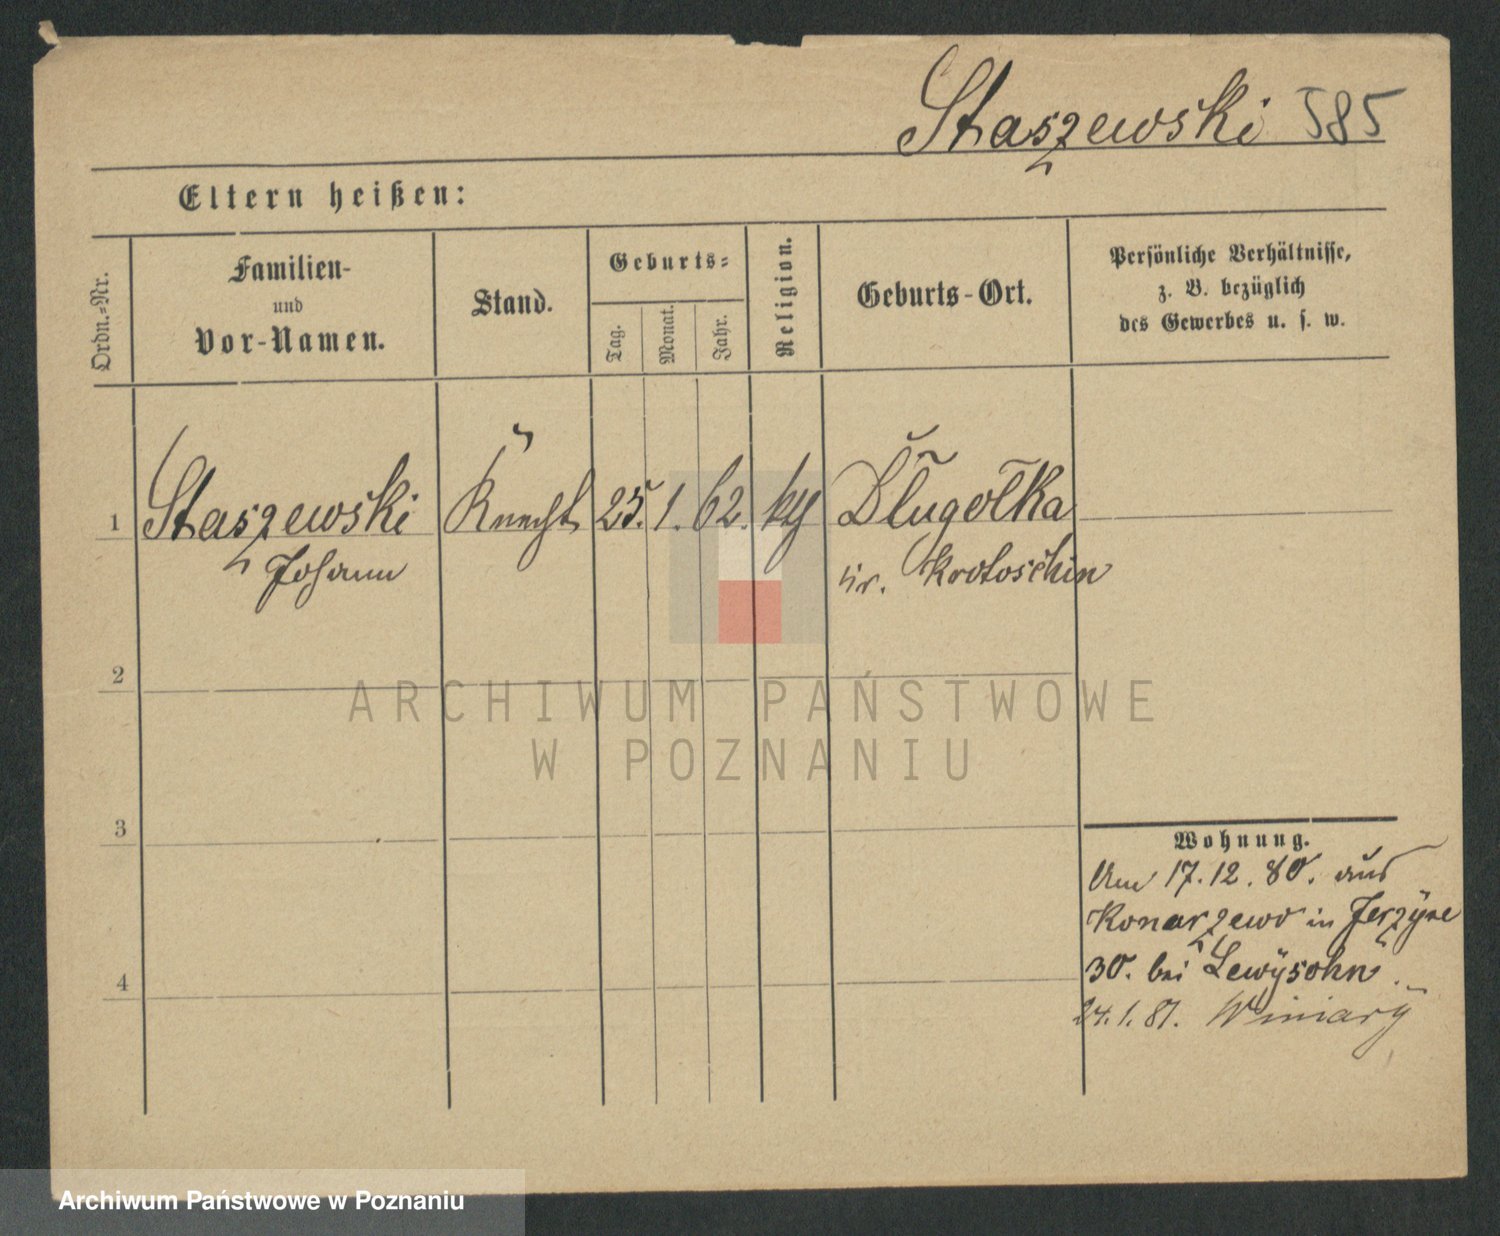 Staszewski 585
Eltern heißen:
Ordn.-Nr.
Familien-
und
Vor-Namen.
Stand.
Geburts-
Tag.
Monat.
Jahr.
Religion.
Geburts-Ort.
Persönliche Verhältnisse,
z. B. bezüglich
des Gewerbes u. s. w.
1 Staszewski Knecht 25. 1. 62. kth Dlugolka
Johann Kr. Krotoschin
2
ARCHIWUM PAŃSTWOWE
W POZNANIU
3
Wohnung.
Am 17.12.80. aus
Konarzewo in Jerzyce
30. bei Lewysohn.
4
24.1.81. Winiary
Archiwum Państwowe w Poznaniu